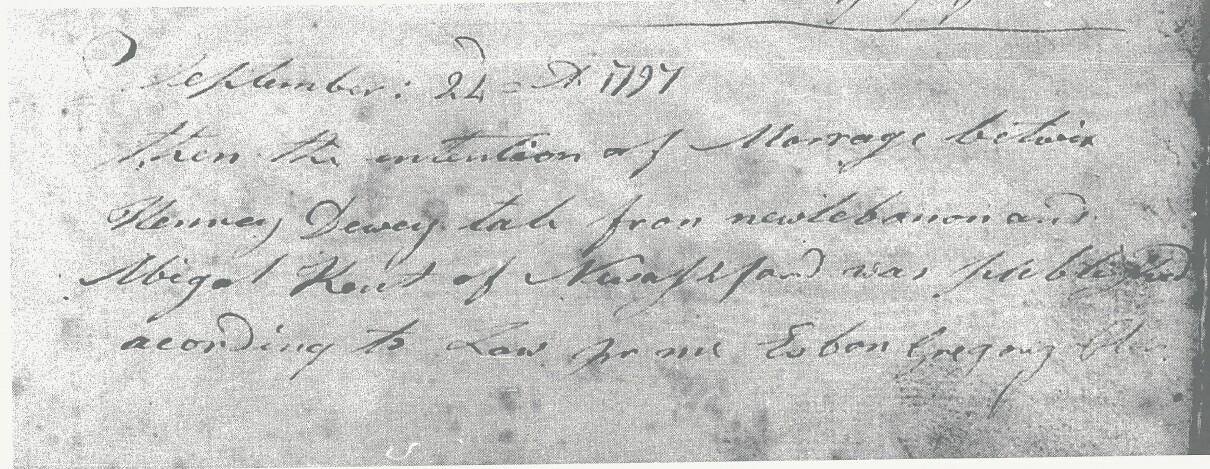 September: 24 - D 1797
then the intention of Marrage betwix
Henrey Dewey tab from newlebanon and
Abigal Kent of Nusashford was published
acording to Law pr me Esbon Gregory Clar